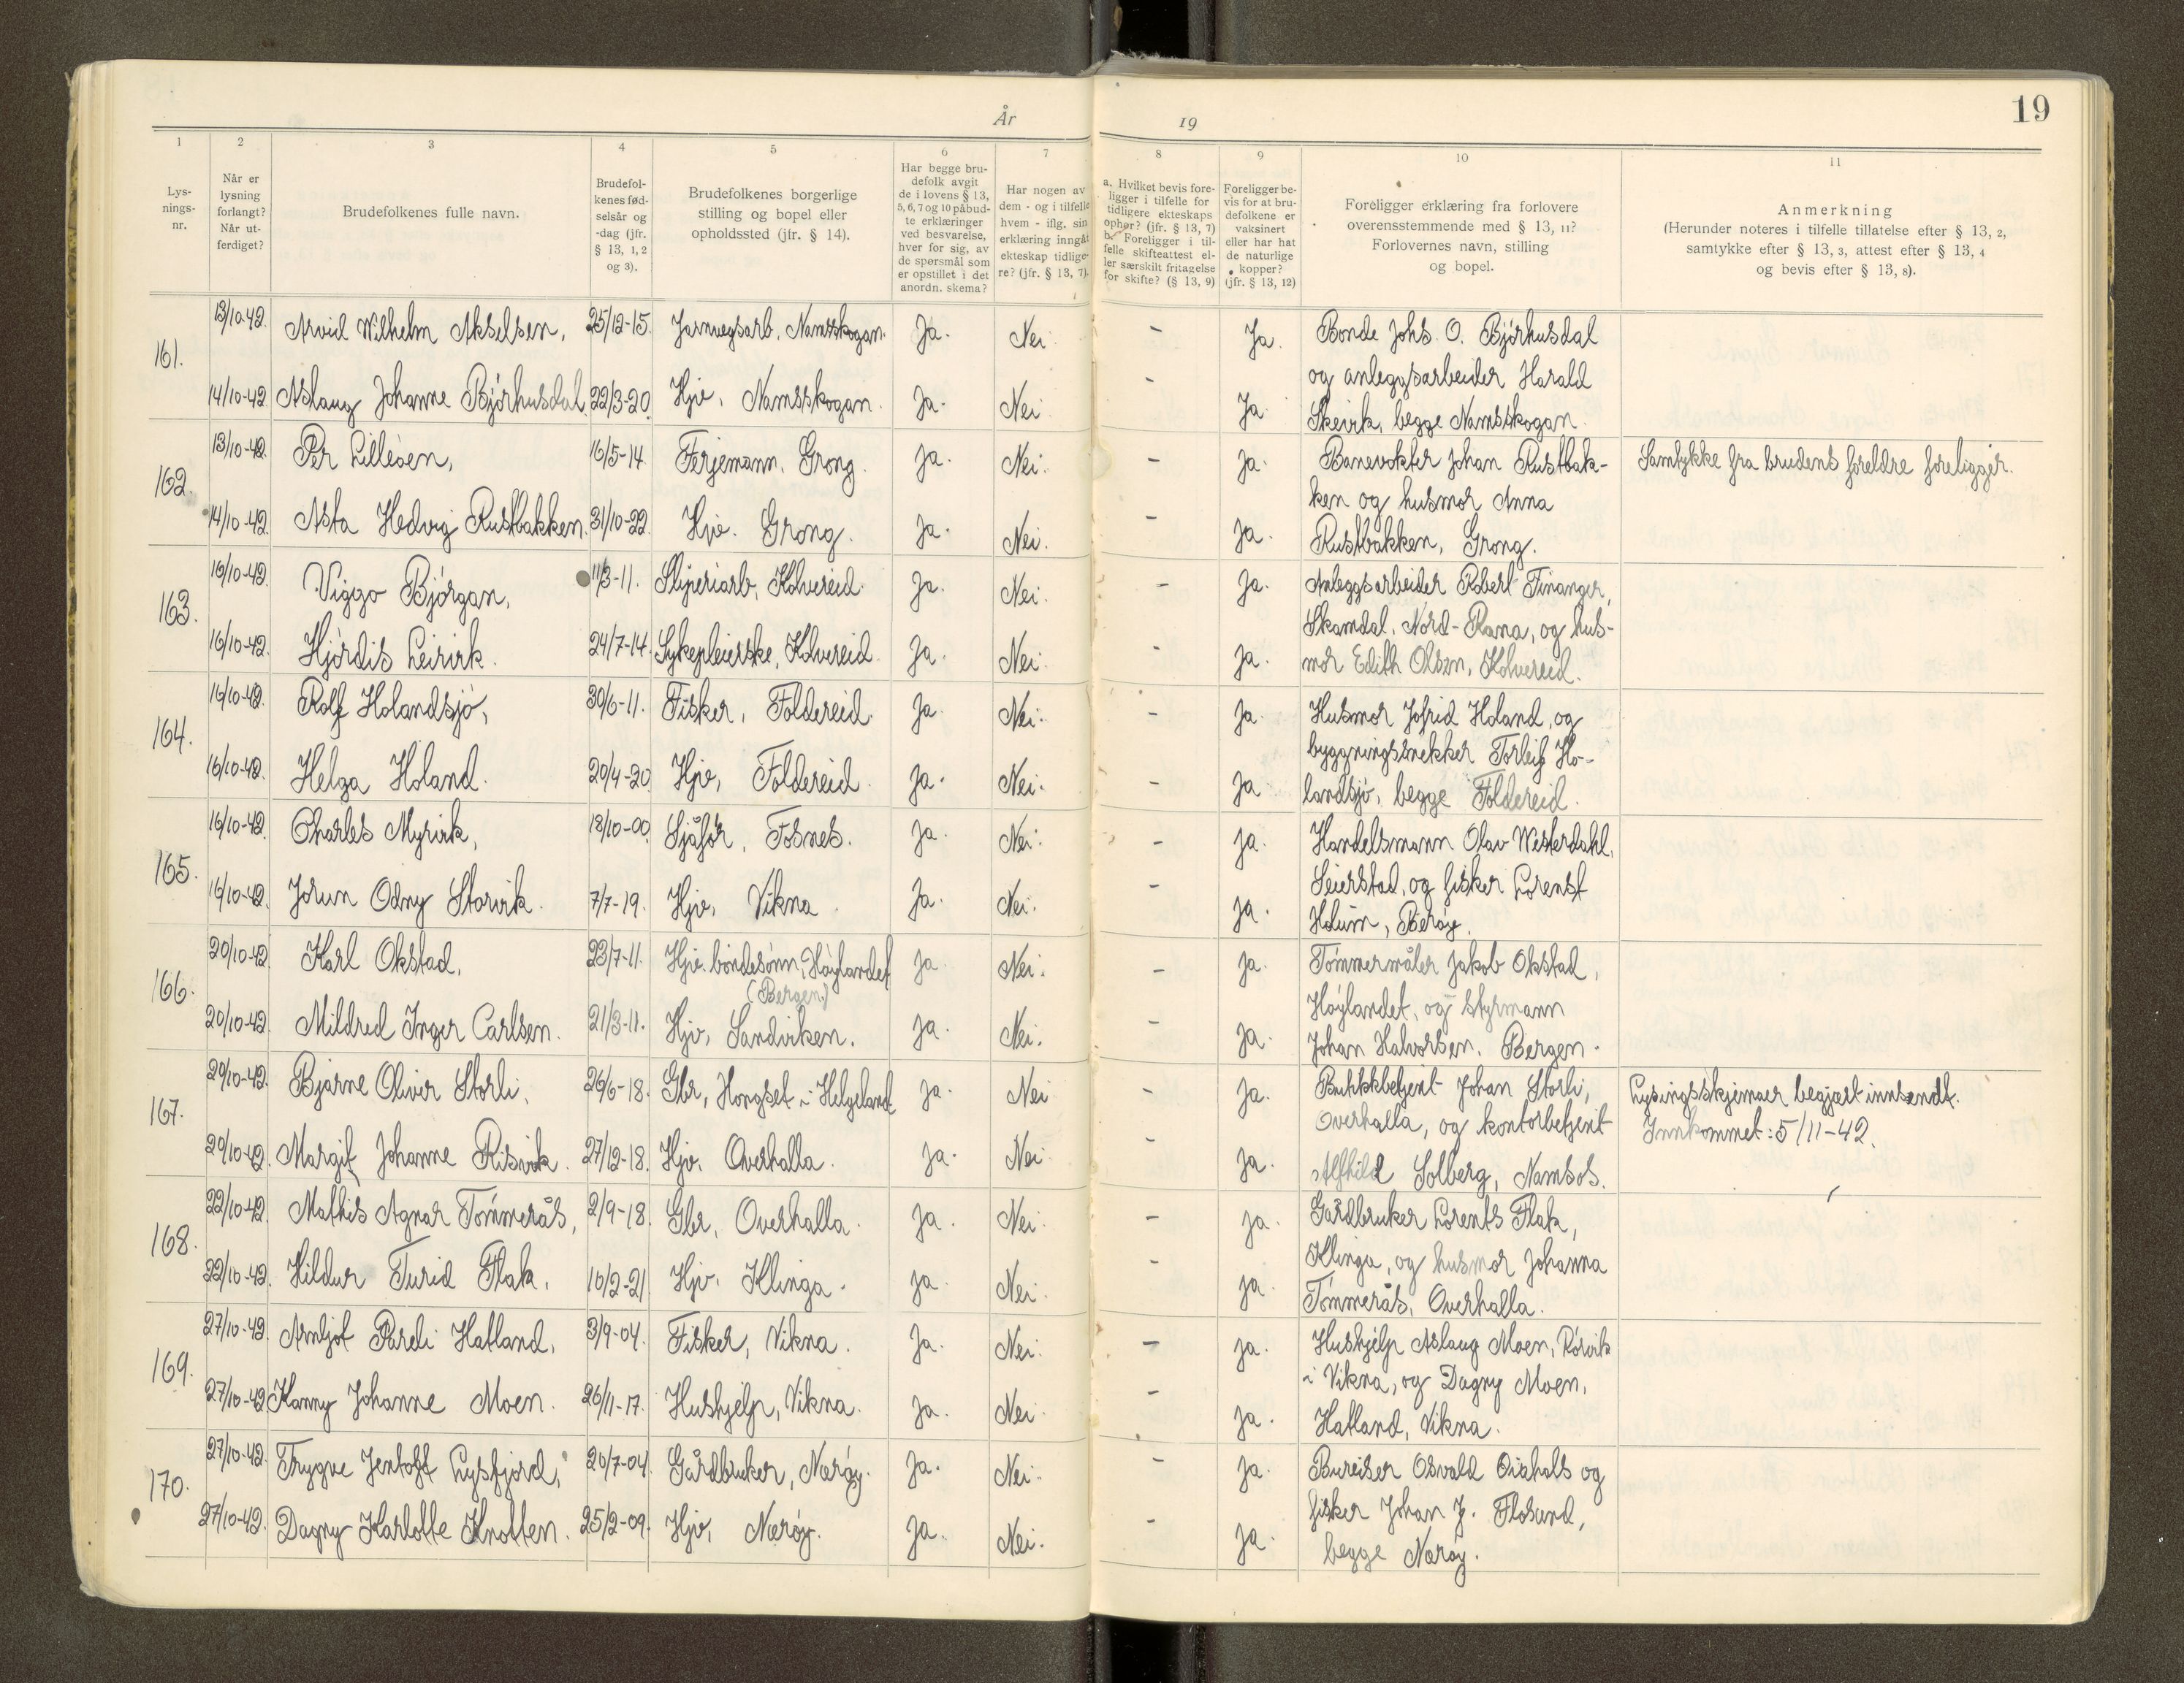 År
19
19
1
2
3
4
5
6
7
8
9
10
11
Lys-
nings-
nr.
Når er
lysning
forlangt?
Når ut-
ferdiget?
Brudefolkenes fulle navn.
Brudefol-
kenes fød-
selsår og
-dag (jfr.
§ 13, 1, 2
og 3).
Brudefolkenes borgerlige
stilling og bopel eller
opholdssted (jfr. § 14).
Har begge bru-
defolk avgit
de i lovens § 13,
5, 6, 7 og 10 påbud-
te erklæringer
ved besvarelse,
hver for sig, av
de spørsmål som
er opstillet i det
anordn. skema?
Har nogen av
dem - og i tilfelle
hvem - iflg. sin
erklæring inngåt
ekteskap tidlige-
re? (jfr. § 13, 7).
a. Hvilket bevis fore-
ligger i tilfelle for
tidligere ekteskaps
ophør? (jfr. § 13, 7)
b. Foreligger i til-
felle skifteattest el-
ler særskilt fritagelse
for skifte? (§ 13, 9)
Foreligger be-
vis for at bru-
defolkene er
vaksinert
eller har hat
de naturlige
kopper?
(jfr. § 13, 12)
Foreligger erklæring fra forlovere
overensstemmende med § 13, 11?
Forlovernes navn, stilling
og bopel.
Anmerkning
(Herunder noteres i tilfelle tillatelse efter § 13, 2,
samtykke efter § 13, 3, attest efter § 13, 4
og bevis efter § 13, 8).
161.
13/10-42. Arvid Wilhelm Akselsen, 25/12-15. Jernvegsarb. Namsskogan. Ja. Nei - Ja.
14/10-42 Aslaug Johanne Bjørhusdal 22/3-20. Hjv. Namsskogan. Ja. Nei - Ja
Bonde Johs. O. Bjørhusdal
og anleggsarbeider Harald
Skeivik, begge Namsskogan.
162.
13/10-42. Per Lilleøen, 16/5-14. Ferjemann. Grong. Ja. Nei. - Ja.
14/10-42. Asta Hedvig Rustbakken. 31/10-22. Hjv. Grong. Ja. Nei. - Ja.
Banevokter Johan Rustbak-
ken og husmor Anna
Rustbakken, Grong.
Samtykke fra brudens foreldre foreligger.
163.
16/10-42. Viggo Bjørgan, 11/3-11. Sliperiarb, Kolvereid. Ja. Nei. - Ja.
16/10-42. Hjørdis Leirvik. 24/7-14. Sykepleierske, Kolvereid. Ja. Nei. - Ja.
Anleggsarbeider Robert Finanger,
Skamdal, Nord-Rana, og hus-
mor Edith Olsen, Kolvereid.
164.
16/10-42. Rolf Holandsjø, 30/6-11. Fisker, Foldereid. Ja. Nei. - Ja.
16/10-42. Helga Holand. 20/4-20 Hjv, Foldereid. Ja. Nei. - Ja
Husmor Jofrid Holand, og
byggningssnekker Torleif Ho-
landsjø, begge Foldereid.
165.
16/10-42. Charles Myrvik, 18/10-00. Sjåfør, Fosnes. Ja. Nei. - Ja.
16/10-42. Jorun Odny Storvik. 7/7-19. Hjv, Vikna. Ja. Nei. - Ja.
Handelsmann Olav Westerdahl,
Seierstad, og fisker Lorenst
Holum, Borøy.
166.
20/10-42 Karl Okstad, 23/7-11. Hjv. bondesønn, Høylandet Ja Nei. - Ja.
(Bergen.)
20/10-42. Mildred Inger Carlsen. 21/3-11. Hjv, Sandviken. Ja. Nei. - Ja.
Tømmermåler Jakob Okstad,
Høylandet, og styrmann
Johan Halvorsen. Bergen.
167.
29/10-42. Bjarne Oliver Storli, 26/6-18. Gbr, Hongset i Helgeland Ja. Nei - Ja.
29/10-42. Margit Johanne Risvik. 27/12-18. Hjv. Overhalla. Ja. Nei. - Ja.
Butikkbetjent Johan Storli,
Overhalla, og kontorbetjent
Alfhild Solberg, Namsos.
Lysingsskjemaer begjært innsendt.
Innkommet: 5/11-42.
168.
22/10-42. Mathis Agnar Tømmerås, 2/9-18. Gbr, Overhalla. Ja. Nei. - Ja.
22/10-42. Hildur Turid Flak, 10/2-21. Hjv. Klinga. Ja. Nei. - Ja.
Gårdbruker Lorents Flak,
Klinga, og husmor Johanna
Tømmerås, Overhalla.
169.
27/10-42. Arnljot Hatland, 3/9-04. Fisker, Vikna. Ja. Nei. - Ja.
27/10-42 Hanny Johanne Moen. 26/11-17. Hushjelp, Vikna. Ja. Nei. - Ja.
Hushjelp Aslaug Moen, Rørvik
i Vikna, og Dagny Moen,
Hatland, Vikna.
170.
27/10-42. Trygve Jentoft Lysfjord, 20/7-04. Gårdbruker, Nærøy. Ja. Nei. - Ja.
27/10-42. Dagny Karlotte Knotten. 25/2-09. Hjv, Nærøy. Ja. Nei. - Ja.
Bureiser Osvald og
fisker Johan J. Flosund,
begge Nærøy.